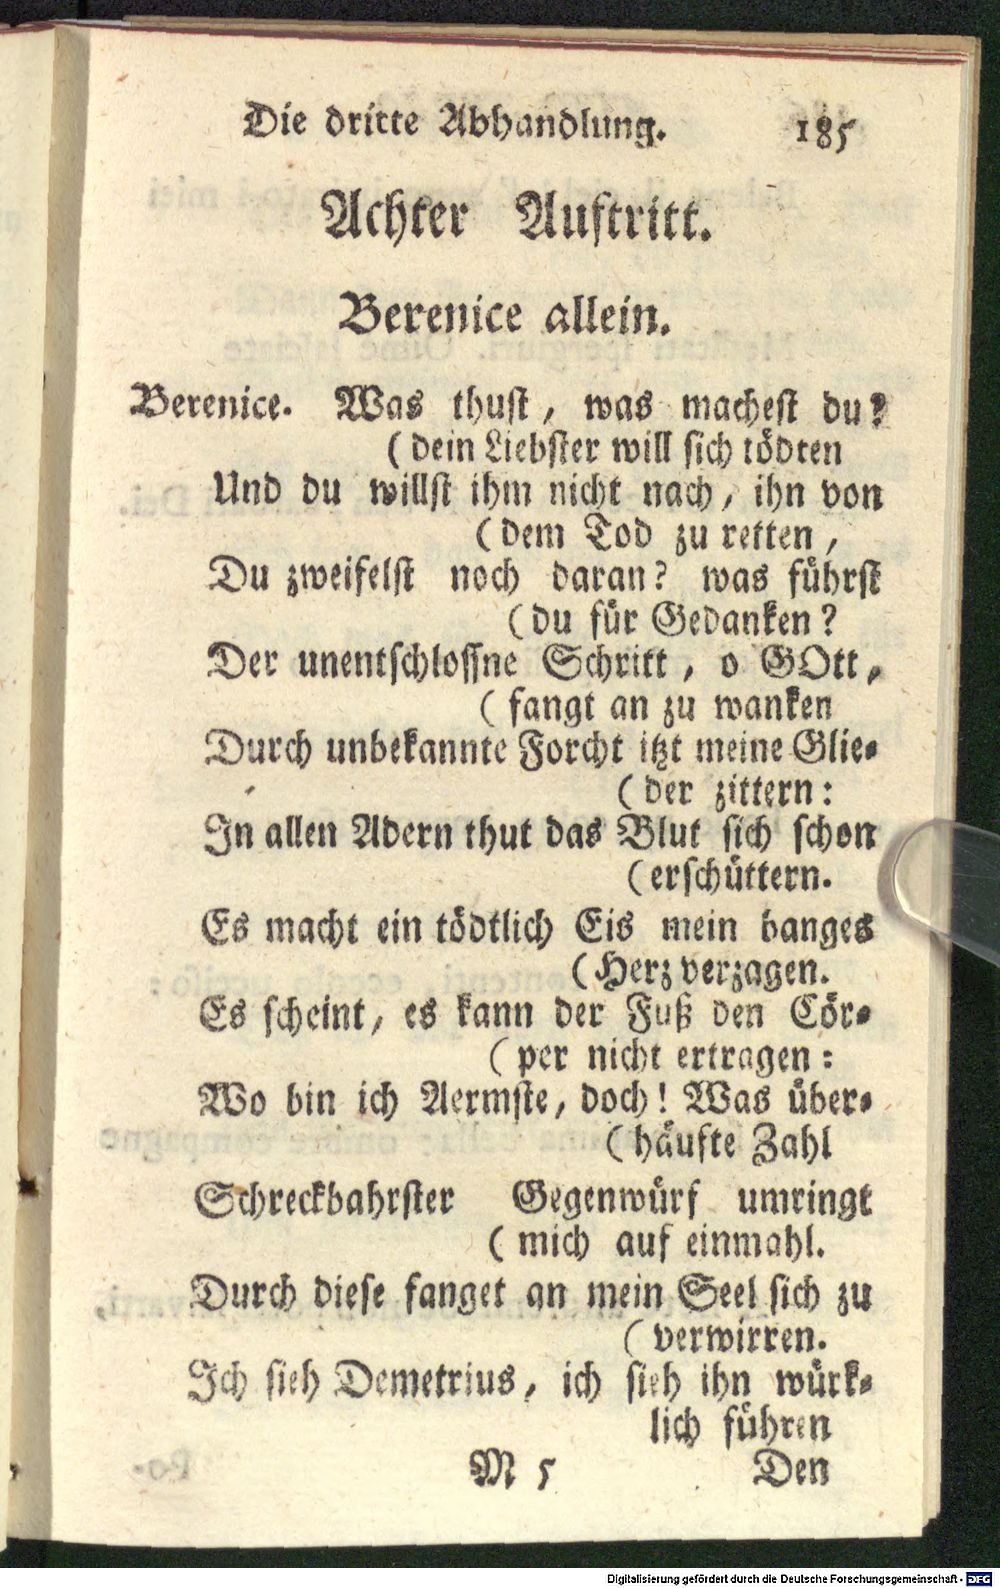 Die dritte Abhandlung. 185
Achter Auftritt.
Berenice allein.
Berenice. Was thust, was machest du?
(dein Liebster will sich tödten
Und du willst ihm nicht nach, ihn von
(dem Tod zu retten,
Du zweifelst noch daran? was führst
(du für Gedanken?
Der unentschlossne Schritt, o GOtt,
(fangt an zu wanken
Durch unbekannte Forcht itzt meine Glie-
(der zittern:
In allen Adern thut das Blut sich schon
(erschüttern.
Es macht ein tödtlich Eis mein banges
(Herz verzagen.
Es scheint, es kann der Fuß den Cör-
(per nicht ertragen:
Wo bin ich Aermste, doch! Was über-
(häufte Zahl
Schreckbahrster Gegenwürf umringt
(mich auf einmahl.
Durch diese fanget an mein Seel sich zu
(verwirren.
Ich sieh Demetrius, ich sieh ihn würk-
lich führen
M 5 Den
Digitalisierung gefördert durch die Deutsche Forschungsgemeinschaft - DFG